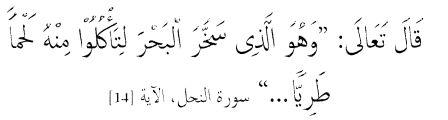 قَالَ تَعَالَى: ”وَهُوَ الَّذِى سَخَّرَ الْبَحْرَ لِتَأْكُلُوْا مِنْهُ لَحْماً
طَرِيًّا...“ سورة النحل، الآية [14]